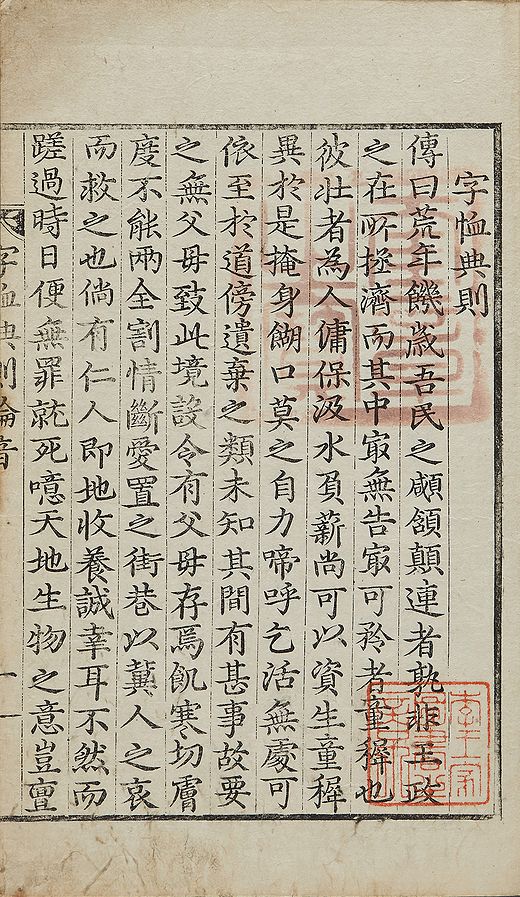 字恤典則
傳曰荒年饑歲吾民之顑頷顛連者孰非王政
之在所拯濟而其中㝡無告㝡可矜者童穉也
彼壯者為人傭保汲水負薪尚可以資生童穉
異於是掩身餬口莫之自力啼呼乞活無處可
依至於道傍遺棄之類未知其間有甚事故要
之無父母致此境設令有父母存焉飢寒切膚
度不能兩全割情斷愛置之街巷以冀人之哀
而救之也倘有仁人即地收養誠幸耳不然而
蹉過時日便無罪就死噫天地生物之意豈亶
字恤典則綸音
一
李王家